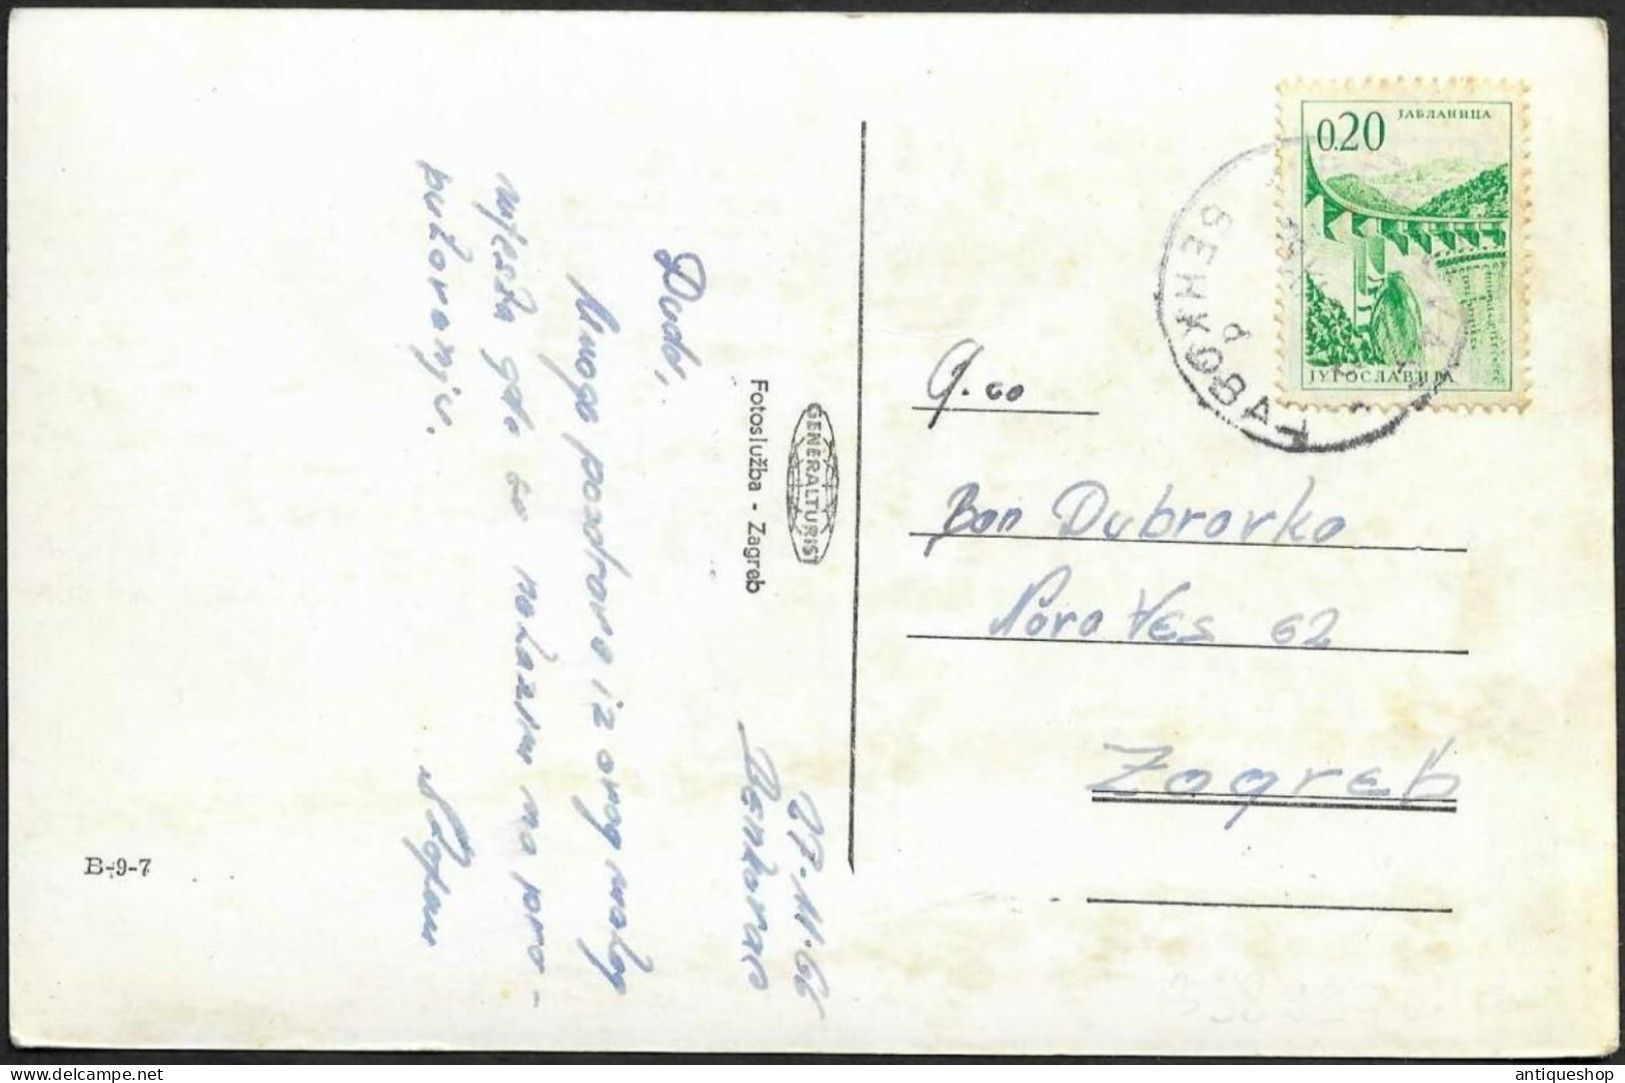 27.11.66
Benkovac
Dudo,
Mnogo pozdrava iz ovog malog
mjesta gdje se nalazim na pro-
putovanju.
GENERALTURIST
Fotoslužba - Zagreb
B-9-7
0.20
ЈАБЛАНИЦА
ЈУГОСЛАВИЈА
БЕНКОВАЦ
Ban Dubravka
Nova Ves 62
Zagreb
delcampe.net
antiqueshop